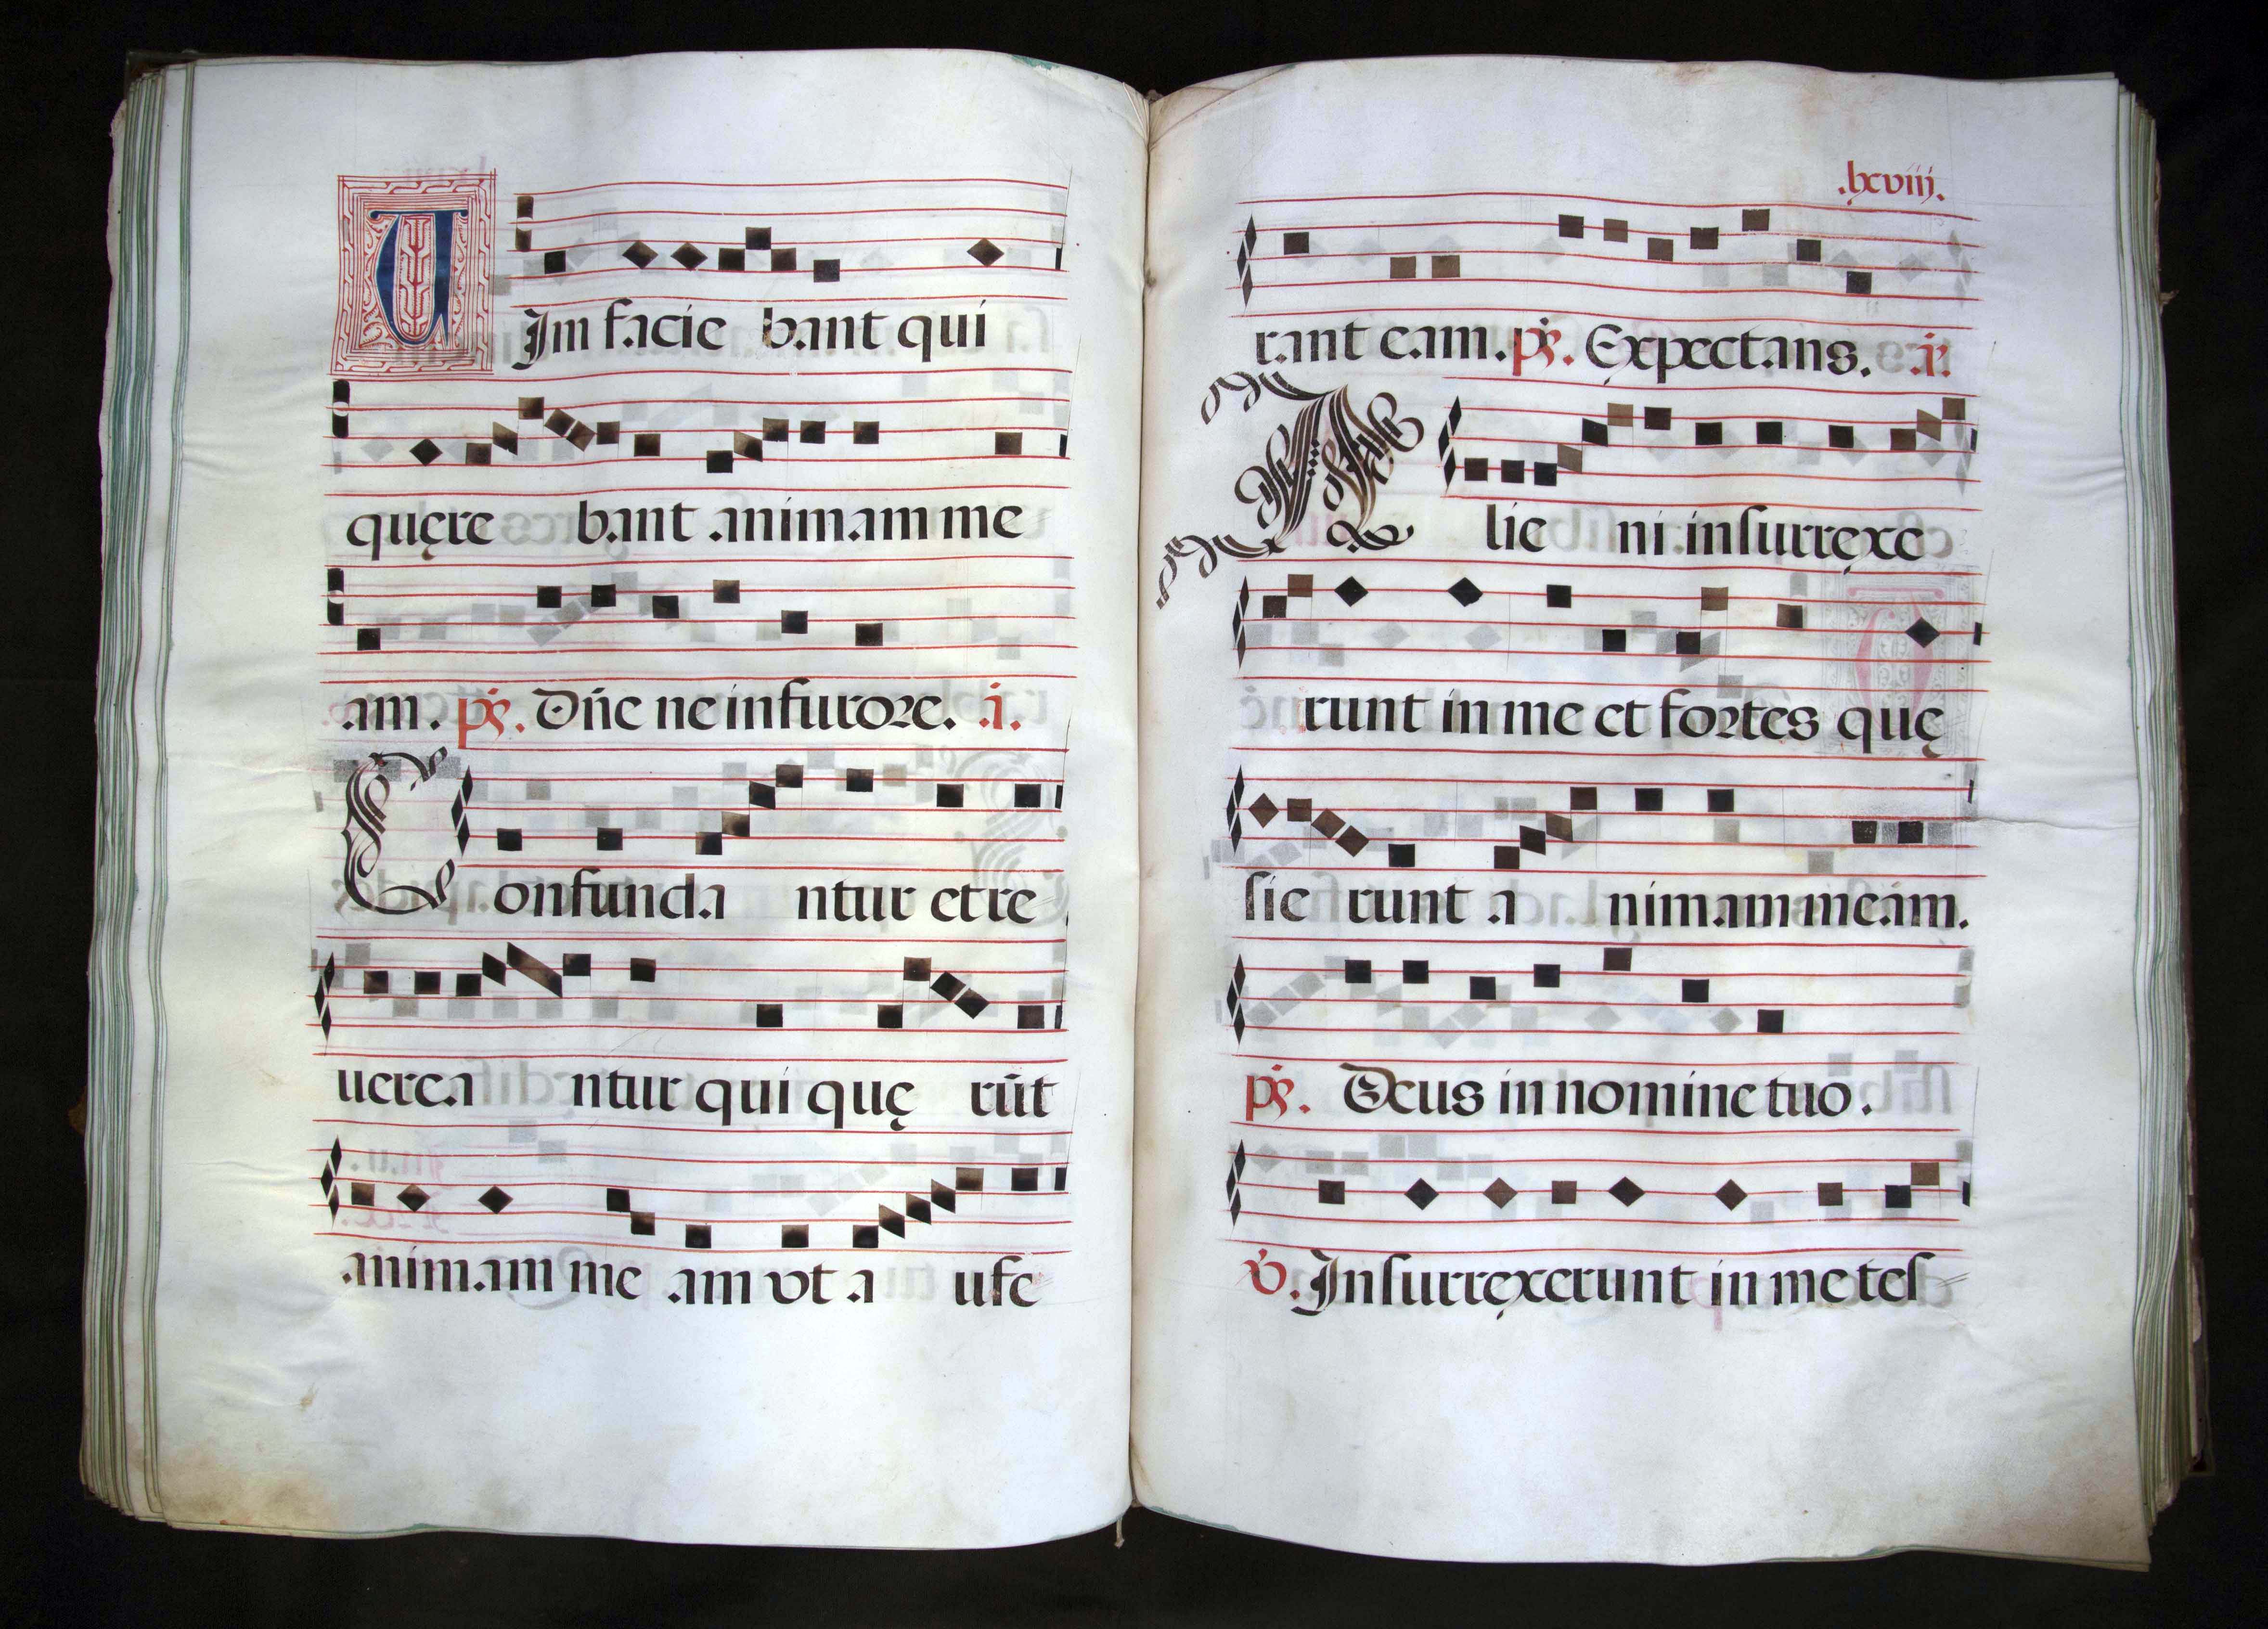 VJm facie bant qui
quęre bant animam me
am. ps. Dñe ne in furore. i.
Confunda ntur et re
uerea ntur qui quę rūt
animam me am vt a ufe
.lxviij.
rant eam. ps. Expectans. i.
Alie ni insurręxe
runt in me et fortes quę
sie runt a nimam meam.
ps. Deus in nomine tuo.
V. Jnsurręxerunt in me tes